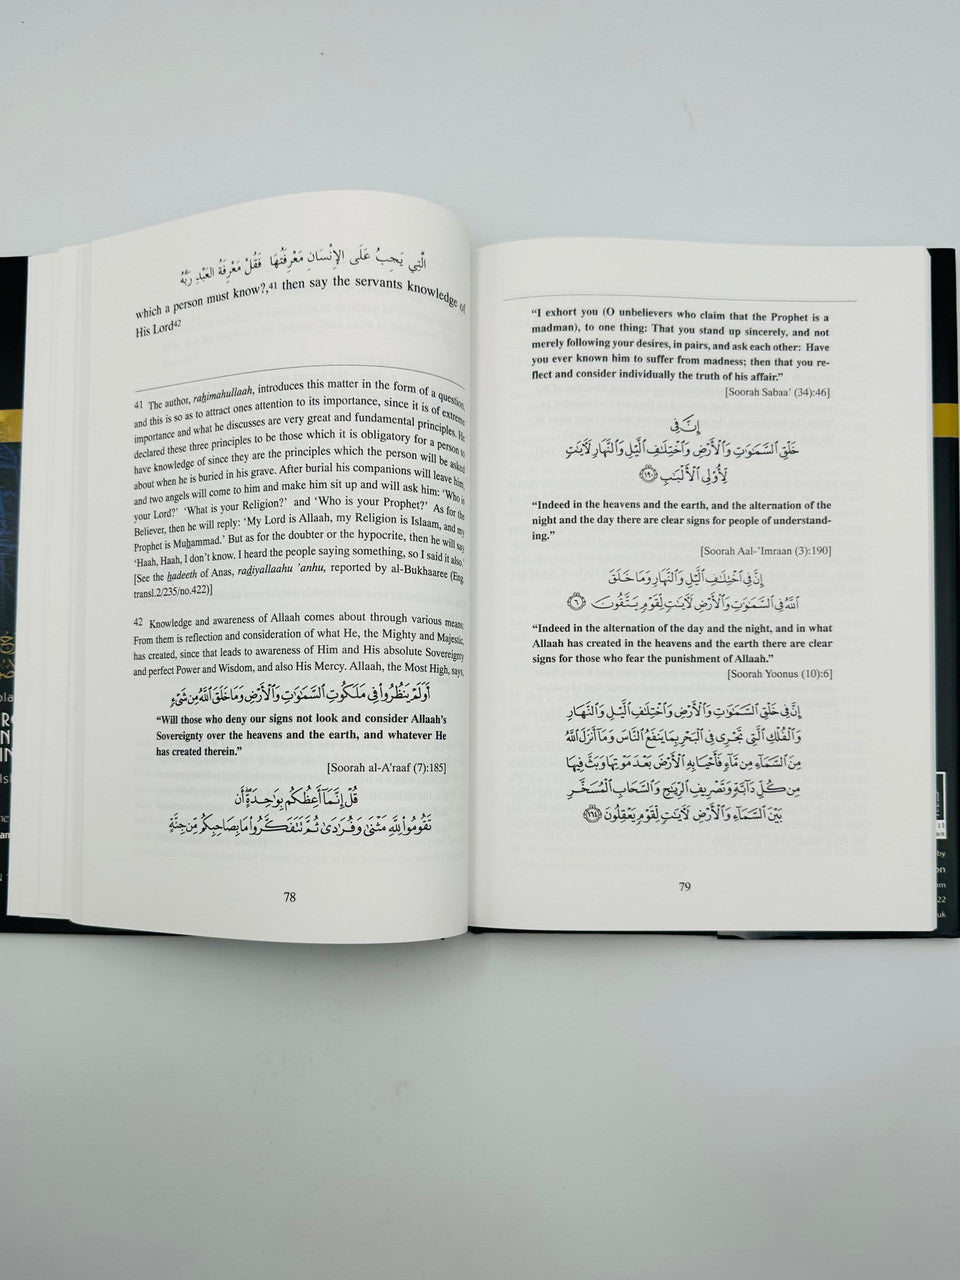 الَّتِي يَجِبُ عَلَى الإِنْسَانِ مَعْرِفَتُهَا فَقُلْ مَعْرِفَةُ العَبْدِ رَبَّهُ
which a person must know?,41 then say the servants knowledge of
His Lord42
41 The author, raḥimahullaah, introduces this matter in the form of a question,
and this is so as to attract ones attention to its importance, since it is of extreme
importance and what he discusses are very great and fundamental principles. He
declared these three principles to be those which it is obligatory for a person to
have knowledge of since they are the principles which the person will be asked
about when he is buried in his grave. After burial his companions will leave him,
and two angels will come to him and make him sit up and will ask him: 'Who is
your Lord?' 'What is your Religion?' and 'Who is your Prophet?' As for the
Believer, then he will reply: 'My Lord is Allaah, my Religion is Islaam, and my
Prophet is Muḥammad.' But as for the doubter or the hypocrite, then he will say
'Haah, Haah, I don't know. I heard the people saying something, so I said it also.'
[See the ḥadeeth of Anas, raḍiyallaahu 'anhu, reported by al-Bukhaaree (Eng.
transl.2/235/no.422)]
42 Knowledge and awareness of Allaah comes about through various means:
From them is reflection and consideration of what He, the Mighty and Majestic,
has created, since that leads to awareness of Him and His absolute Sovereignty
and perfect Power and Wisdom, and also His Mercy. Allaah, the Most High, says,
أَوَلَمْ يَنظُرُوا۟ فِى مَلَكُوتِ ٱلسَّمَٰوَٰتِ وَٱلْأَرْضِ وَمَا خَلَقَ ٱللَّهُ مِن شَىْءٍ
"Will those who deny our signs not look and consider Allaah's
Sovereignty over the heavens and the earth, and whatever He
has created therein."
[Soorah al-A'raaf (7):185]
قُلْ إِنَّمَآ أَعِظُكُم بِوَٰحِدَةٍ أَن
تَقُومُوا۟ لِلَّهِ مَثْنَىٰ وَفُرَٰدَىٰ ثُمَّ تَتَفَكَّرُوا۟ مَا بِصَاحِبِكُم مِّن جِنَّةٍ
78
"I exhort you (O unbelievers who claim that the Prophet is a
madman), to one thing: That you stand up sincerely, and not
merely following your desires, in pairs, and ask each other: Have
you ever known him to suffer from madness; then that you re-
flect and consider individually the truth of his affair."
[Soorah Sabaa' (34):46]
إِنَّ فِى
خَلْقِ ٱلسَّمَٰوَٰتِ وَٱلْأَرْضِ وَٱخْتِلَٰفِ ٱلَّيْلِ وَٱلنَّهَارِ لَءَايَٰتٍ
لِّأُو۟لِى ٱلْأَلْبَٰبِ ١٩٠
"Indeed in the heavens and the earth, and the alternation of the
night and the day there are clear signs for people of understand-
ing."
[Soorah Aal-'Imraan (3):190]
إِنَّ فِى ٱخْتِلَٰفِ ٱلَّيْلِ وَٱلنَّهَارِ وَمَا خَلَقَ
ٱللَّهُ فِى ٱلسَّمَٰوَٰتِ وَٱلْأَرْضِ لَءَايَٰتٍ لِّقَوْمٍ يَتَّقُونَ ٦
"Indeed in the alternation of the day and the night, and in what
Allaah has created in the heavens and the earth there are clear
signs for those who fear the punishment of Allaah."
[Soorah Yoonus (10):6]
إِنَّ فِى خَلْقِ ٱلسَّمَٰوَٰتِ وَٱلْأَرْضِ وَٱخْتِلَٰفِ ٱلَّيْلِ وَٱلنَّهَارِ
وَٱلْفُلْكِ ٱلَّتِى تَجْرِى فِى ٱلْبَحْرِ بِمَا يَنفَعُ ٱلنَّاسَ وَمَآ أَنزَلَ ٱللَّهُ
مِنَ ٱلسَّمَآءِ مِن مَّآءٍ فَأَحْيَا بِهِ ٱلْأَرْضَ بَعْدَ مَوْتِهَا وَبَثَّ فِيهَا
مِن كُلِّ دَآبَّةٍ وَتَصْرِيفِ ٱلرِّيَٰحِ وَٱلسَّحَابِ ٱلْمُسَخَّرِ
بَيْنَ ٱلسَّمَآءِ وَٱلْأَرْضِ لَءَايَٰتٍ لِّقَوْمٍ يَعْقِلُونَ ١٦٤
79